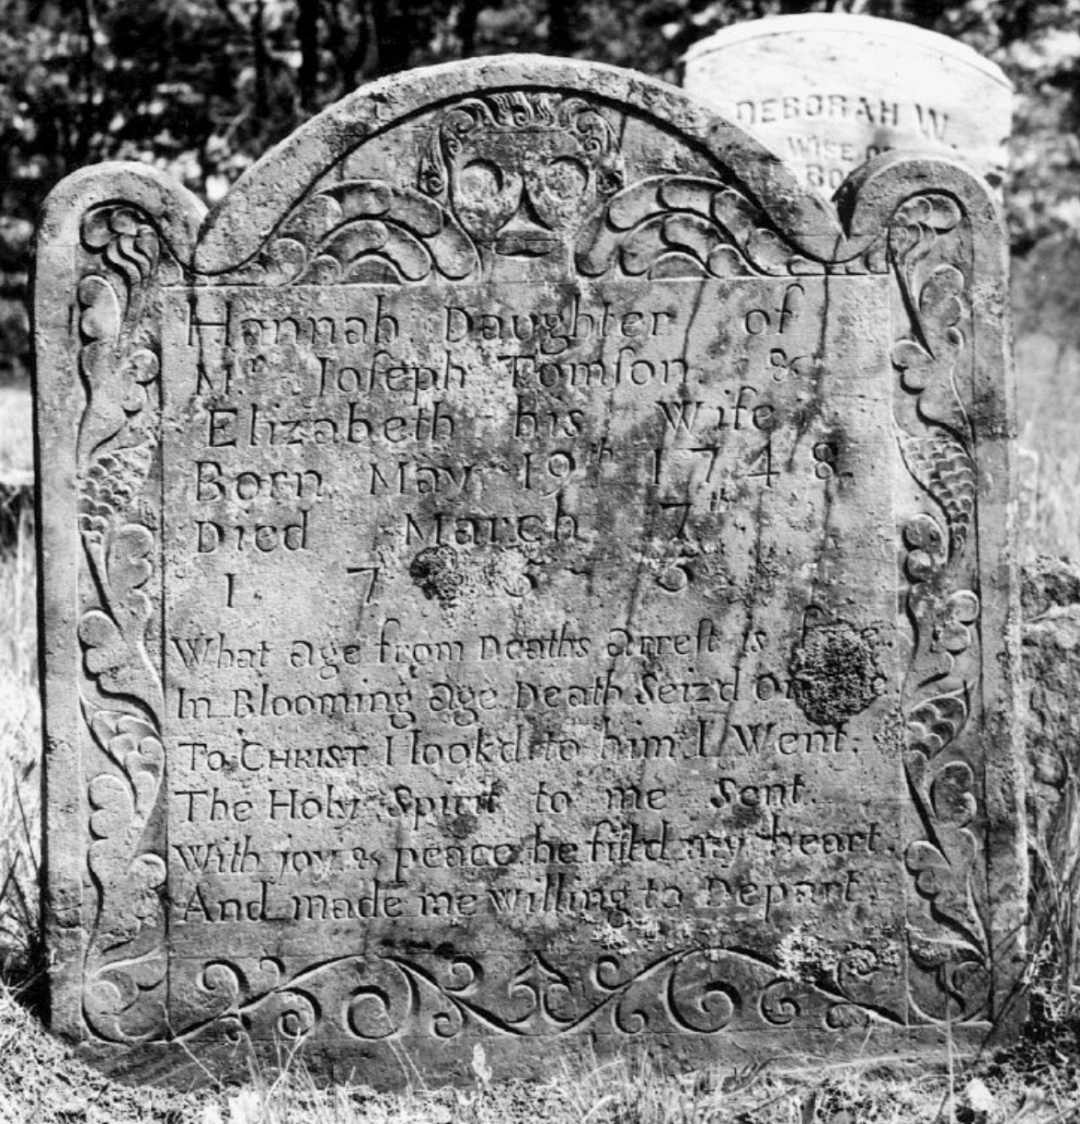 DEBORAH W
WIFE OF
BO
Hannah Daughter of
Mr. Ioſeph Tomſon &
Elizabeth his Wife
Born May 19th 1748
Died March 7th
1 7 6
What age from Deaths arreſt is free
In Blooming age Death Seiz'd On
To CHRIST I look'd to him I Went;
The Holy Spirit to me Sent.
With joy & peace he fill'd my heart.
And made me willing to Depart.